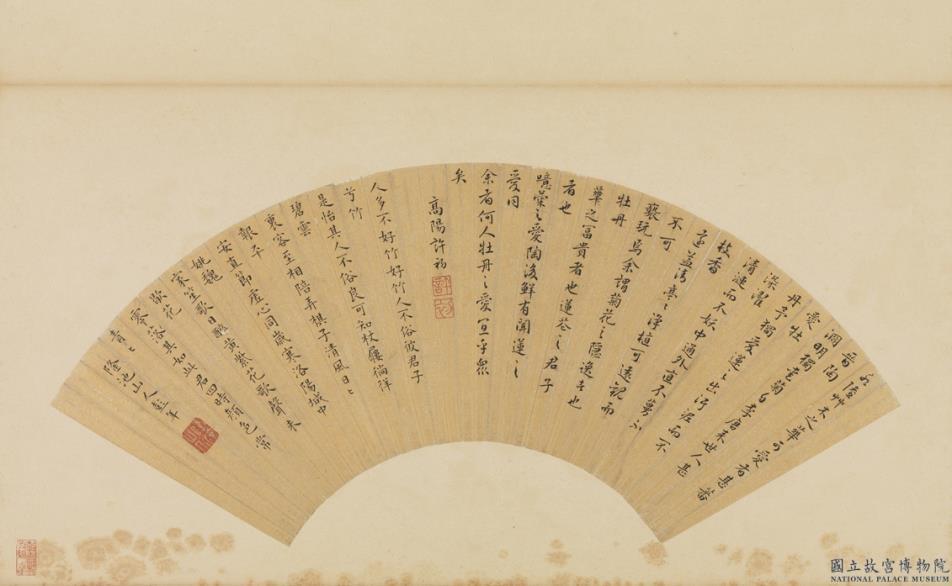 水陸艸木之華可愛者甚蕃
晉陶
淵明獨愛菊自李唐來世人甚
愛牡
丹予獨愛蓮之出汙泥而不
染濯
清漣而不妖中通外直不蔓不
枝香
遠益清亭亭淨植可遠觀而
不可
褻玩焉余謂菊花之隱逸者也
牡丹
華之富貴者也蓮花之君子
者也
噫菊之愛陶後鮮有聞蓮之
愛同
余者何人牡丹之愛宜乎眾
矣
高陽許初
人多不好竹好竹人不俗彼君子
兮竹
是怡其人不俗良可知杖屨徜徉
碧雲
裏客至相陪弄棋子清風日日
報平
安直節虛心同歲寒洛陽城中
姚魏
家笙歌日醉黃紫花歌聲未
歇花
零落其如此君四時顏色常
青青
隆池山人彭年
國立故宮博物院
NATIONAL PALACE MUSEUM